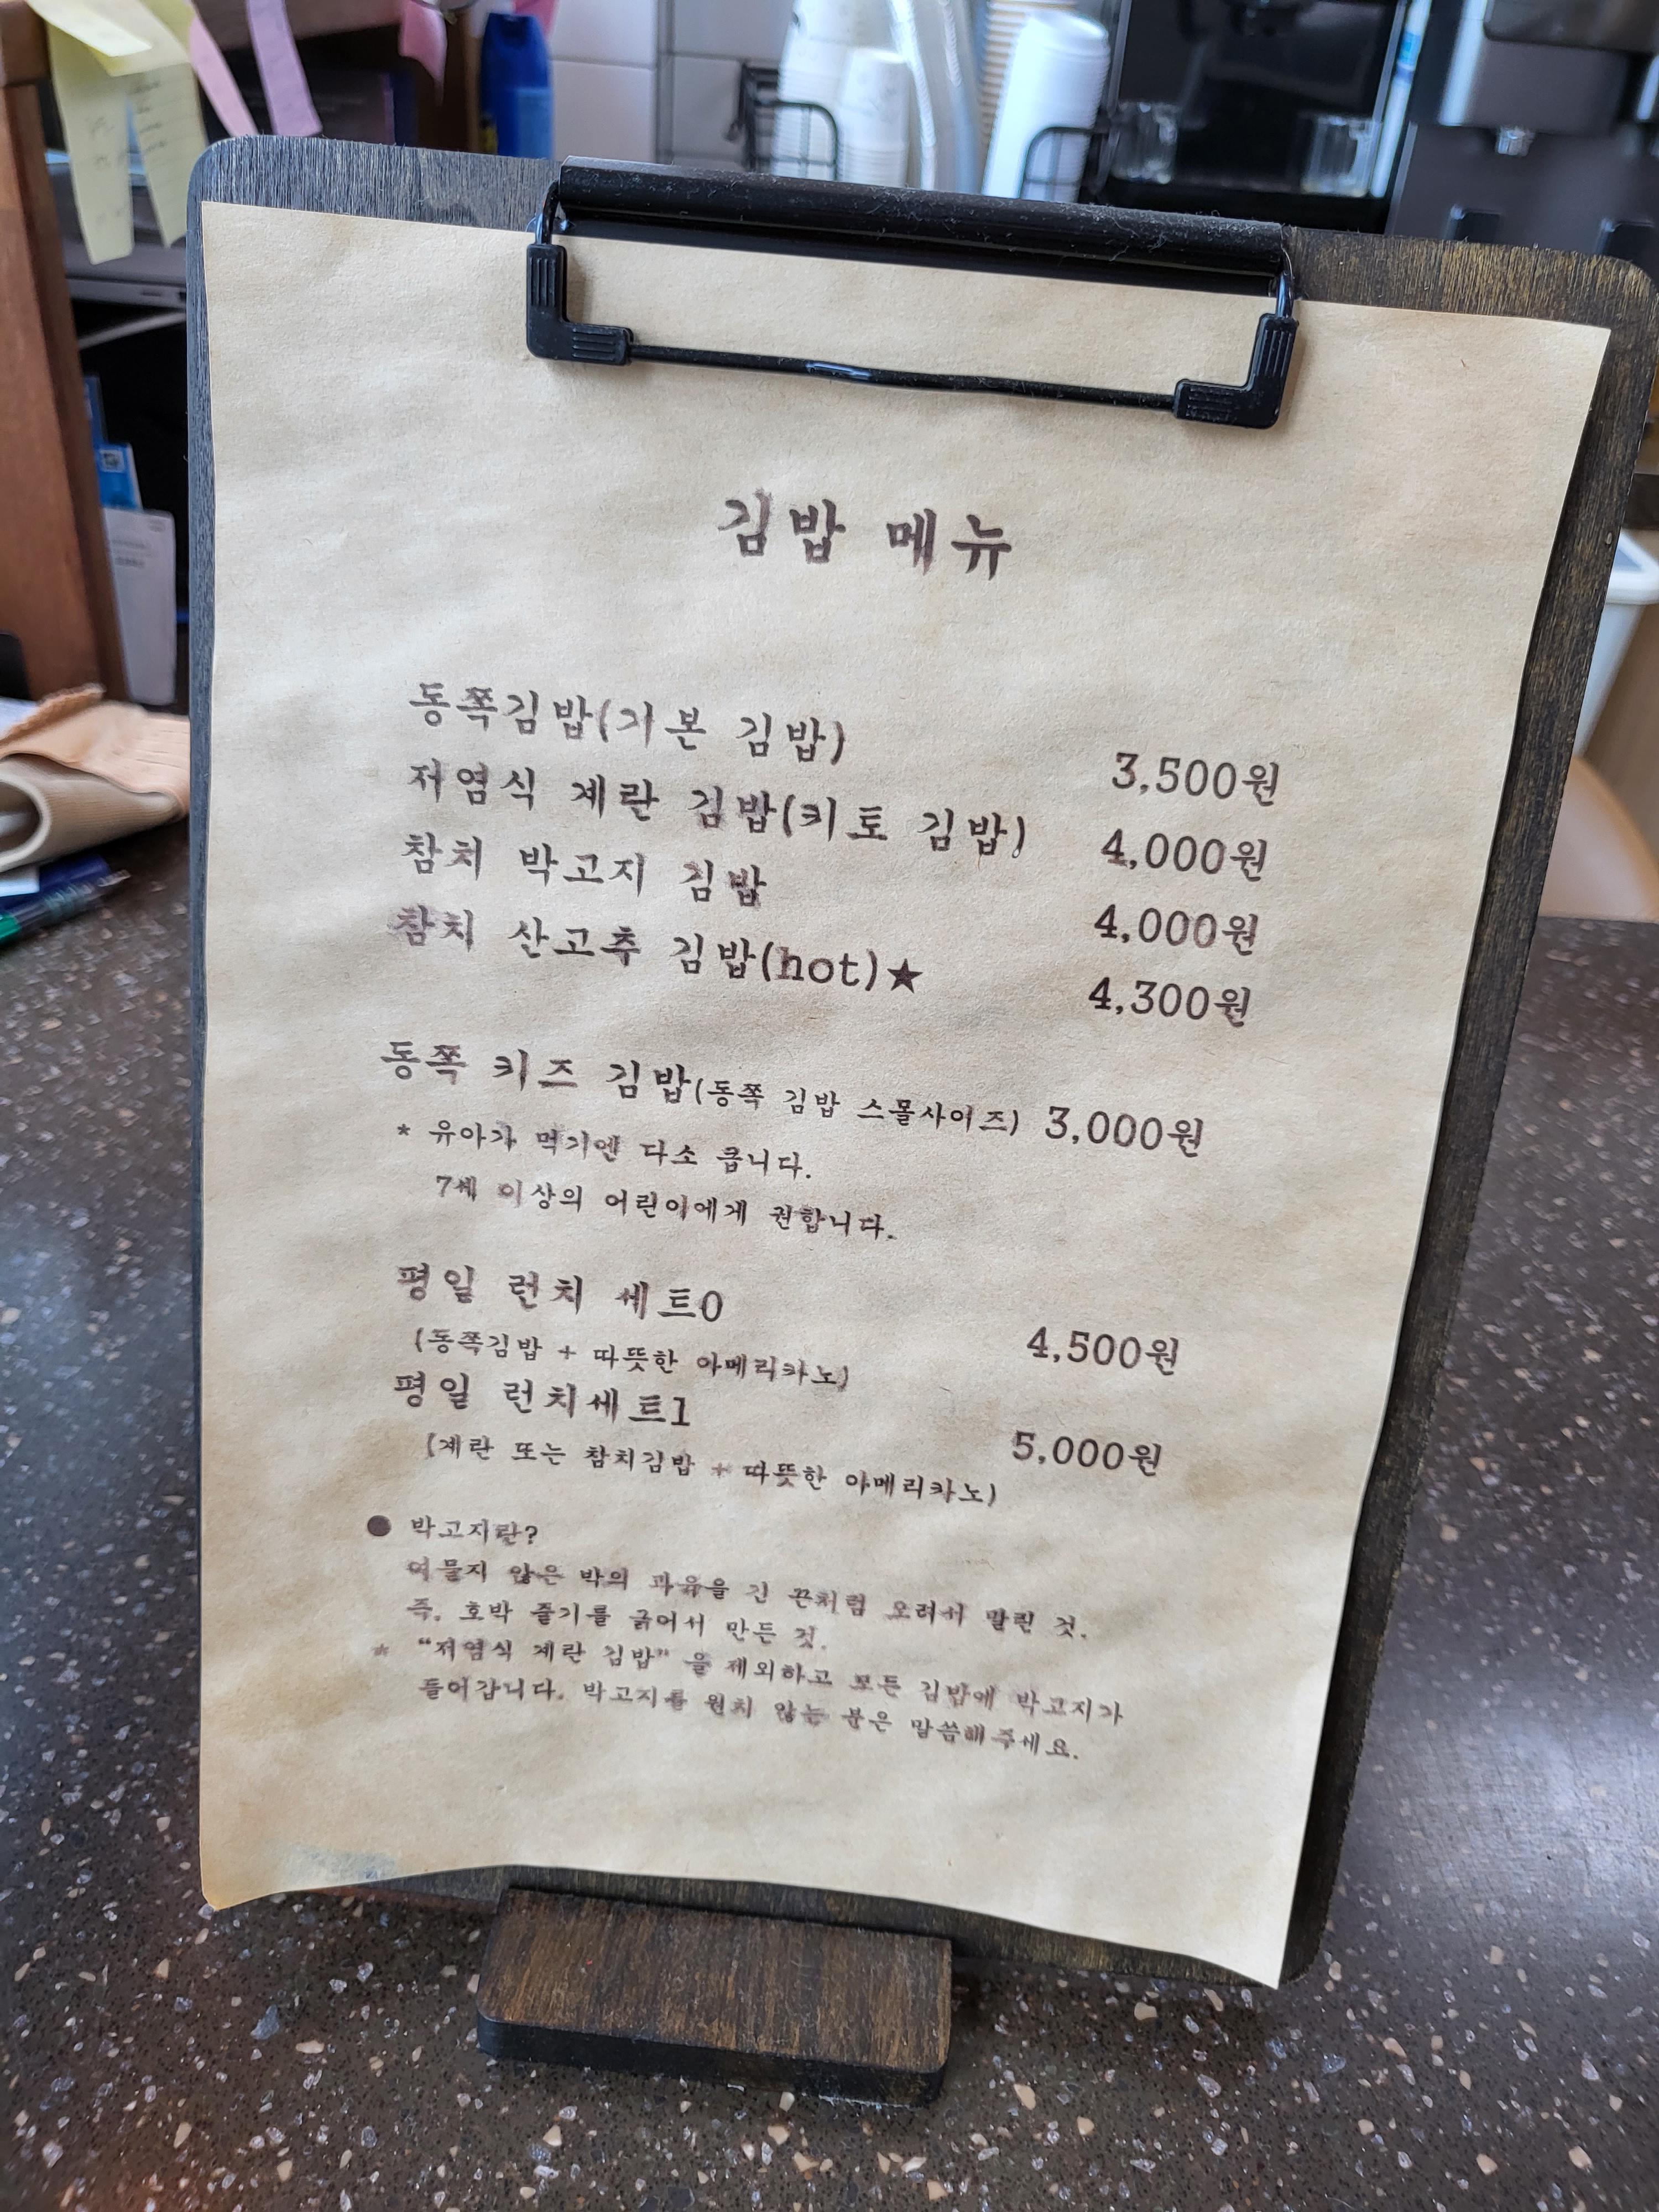 김밥 메뉴
동쪽김밥(기본 김밥) 3,500원
저염식 계란 김밥(키토 김밥) 4,000원
참치 박고지 김밥 4,000원
참치 산고추 김밥(hot)★ 4,300원
동쪽 키즈 김밥(동쪽 김밥 스몰사이즈) 3,000원
* 유아가 먹기엔 다소 큽니다.
7세 이상의 어린이에게 권합니다.
평일 런치 세트0 4,500원
(동쪽김밥 + 따뜻한 아메리카노)
평일 런치세트1 5,000원
(계란 또는 참치김밥 + 따뜻한 아메리카노)
● 박고지란?
여물지 않은 박의 과육을 긴 끈처럼 오려서 말린 것.
즉, 호박 줄기를 긁어서 만든 것.
* "저염식 계란 김밥" 을 제외하고 모든 김밥에 박고지가
들어갑니다. 박고지를 원치 않는 분은 말씀해주세요.